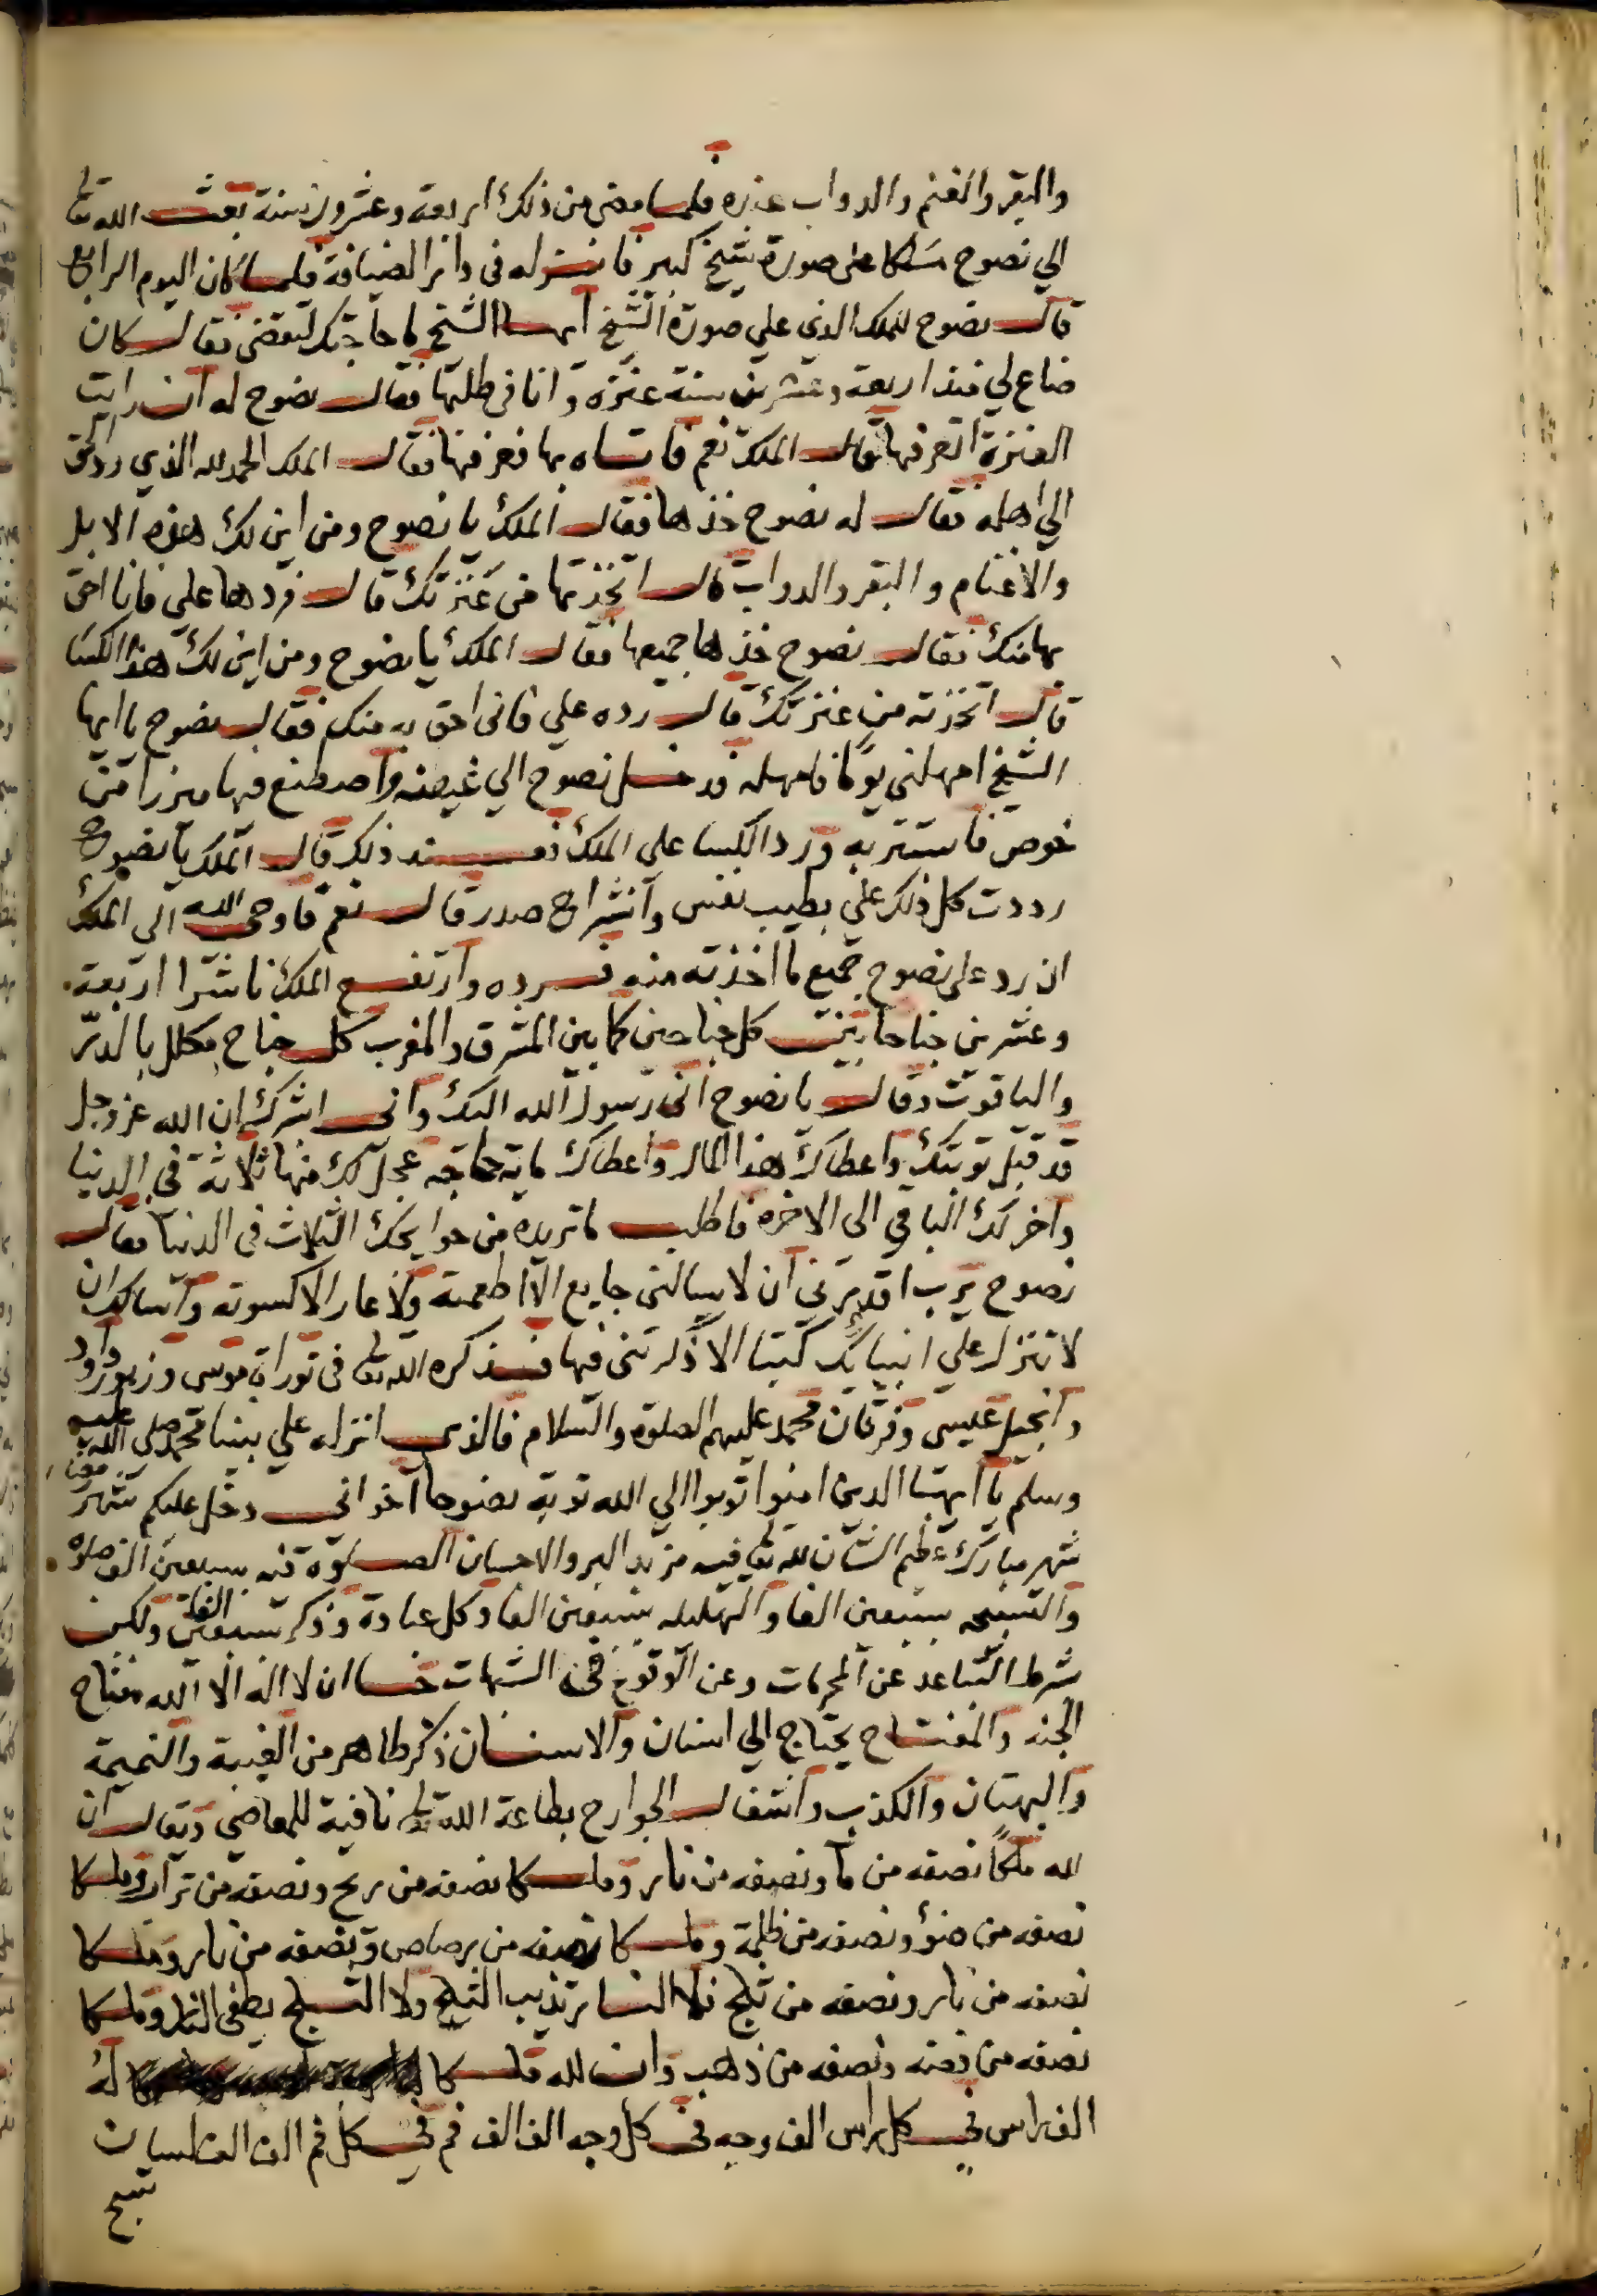 والبقر والغنم والدواب عنزه فلما مضى من ذلك اربعة وعشرون سنة بعث الله تعا
الي نصوح ملكا على صورة شيخ كبير فانزله فى دار الضيافة فلما كان اليوم الرابع
قال نصوح للملك الذى علي صورة الشيخ ايها الشيخ ما حاجتك لتقضى فقال كان
ضاع لي منذ اربعة وعشرين سنة عنزة وانا فى طلبها فقال نصوح له ان رايت
العنزة اتعرفها قال الملك نعم فاتاه بها فعرفها فقال الملك الحمد لله الذي رد الحق
الي اهله فقال له نصوح خذها فقال الملك يا نصوح ومن اين لك هذه الابل
والاغنام والبقر والدواب قال اتخذتها من عنزتك قال فردها علي فانا احق
بها منك فقال نصوح خذها جميعها فقال الملك يا نصوح ومن اين لك هذا الكسا
قال اتخذته من عنزتك قال رده علي فانى احق به منك فقال نصوح يا ايها
الشيخ امهلني يوما فامهله فدخل نصوح الي غيضه واصطنع فيها ميزرا من
خوص فاستتر به ورد الكسا علي الملك فعند ذلك قال الملك يا نصوح
رددت كل ذلك علي بطيب نفس وانشراح صدر قال نعم فاوحى الله الى الملك
ان رد على نصوح جميع ما اخذته منه فرده وارتفع الملك ناشرا اربعة
وعشرين جناحا بين كل جناحين كما بين المشرق والمغرب كل جناح مكلل بالدر
والياقوت وقال يا نصوح انى رسول الله اليك وانى ابشرك ان الله عز وجل
قد قبل توبتك واعطاك هذا المال واعطاك ماية حاجه عجل لك منها ثلاثة في الدنيا
واخر لك الباقي الى الاخره فاطلب ما تريده من حوايجك الثلاث فى الدنيا فقال
نصوح يرب اقدرنى ان لا يسالنى جايع الا اطعمته ولا عار الا كسوته واسالك ان
لا تنزل علي انبيائك كتبا الا ذكرتنى فيها فذكره الله تعا فى توراة موسى وزبور داود
وانجيل عيسى وفرقان محمد عليهم الصلوة والسلام فالذي انزله علي نبينا محمد صلى الله عليه
وسلم يا ايها الذين امنوا توبوا الي الله توبة نصوحا اخوانى دخل عليكم شهر
شهر مبارك عظيم الشان لله تعا فيه مزيد البر والاحسان الصلوة فيه بسبعين الف صلاه
والتسبيحه بسبعين الفا والتهليله بسبعين الفا وكل عبادة وذكر بسبعين الفا ولكن
شرط التباعد عن المحرمات وعن الوقوع فى الشبهات حسا ان لا اله الا الله مفتاح
الجنه والمفتاح يحتاج الي اسنان والاسنان ذكر طاهر من الغيبة والنميمة
والبهتان والكذب واشغال الجوارح بطاعة الله تعا نافية للمعاصي ويقال ان
لله ملكا نصفه من ما ونصفه من نار وملكا نصفه من ريح ونصفه من تراب وملكا
نصفه من ضوء ونصفه من ظلمة وملكا نصفه من رصاص ونصفه من نار وملكا
نصفه من نار ونصفه من ثلج فلا النار تذيب الثلج ولا الثلج يطفى النار وملكا
نصفه من فضه ونصفه من ذهب وان لله ملكا له
الف راس في كل راس الف وجه فى كل وجه الف الف فم فى كل فم الف الف لسان
تسبح